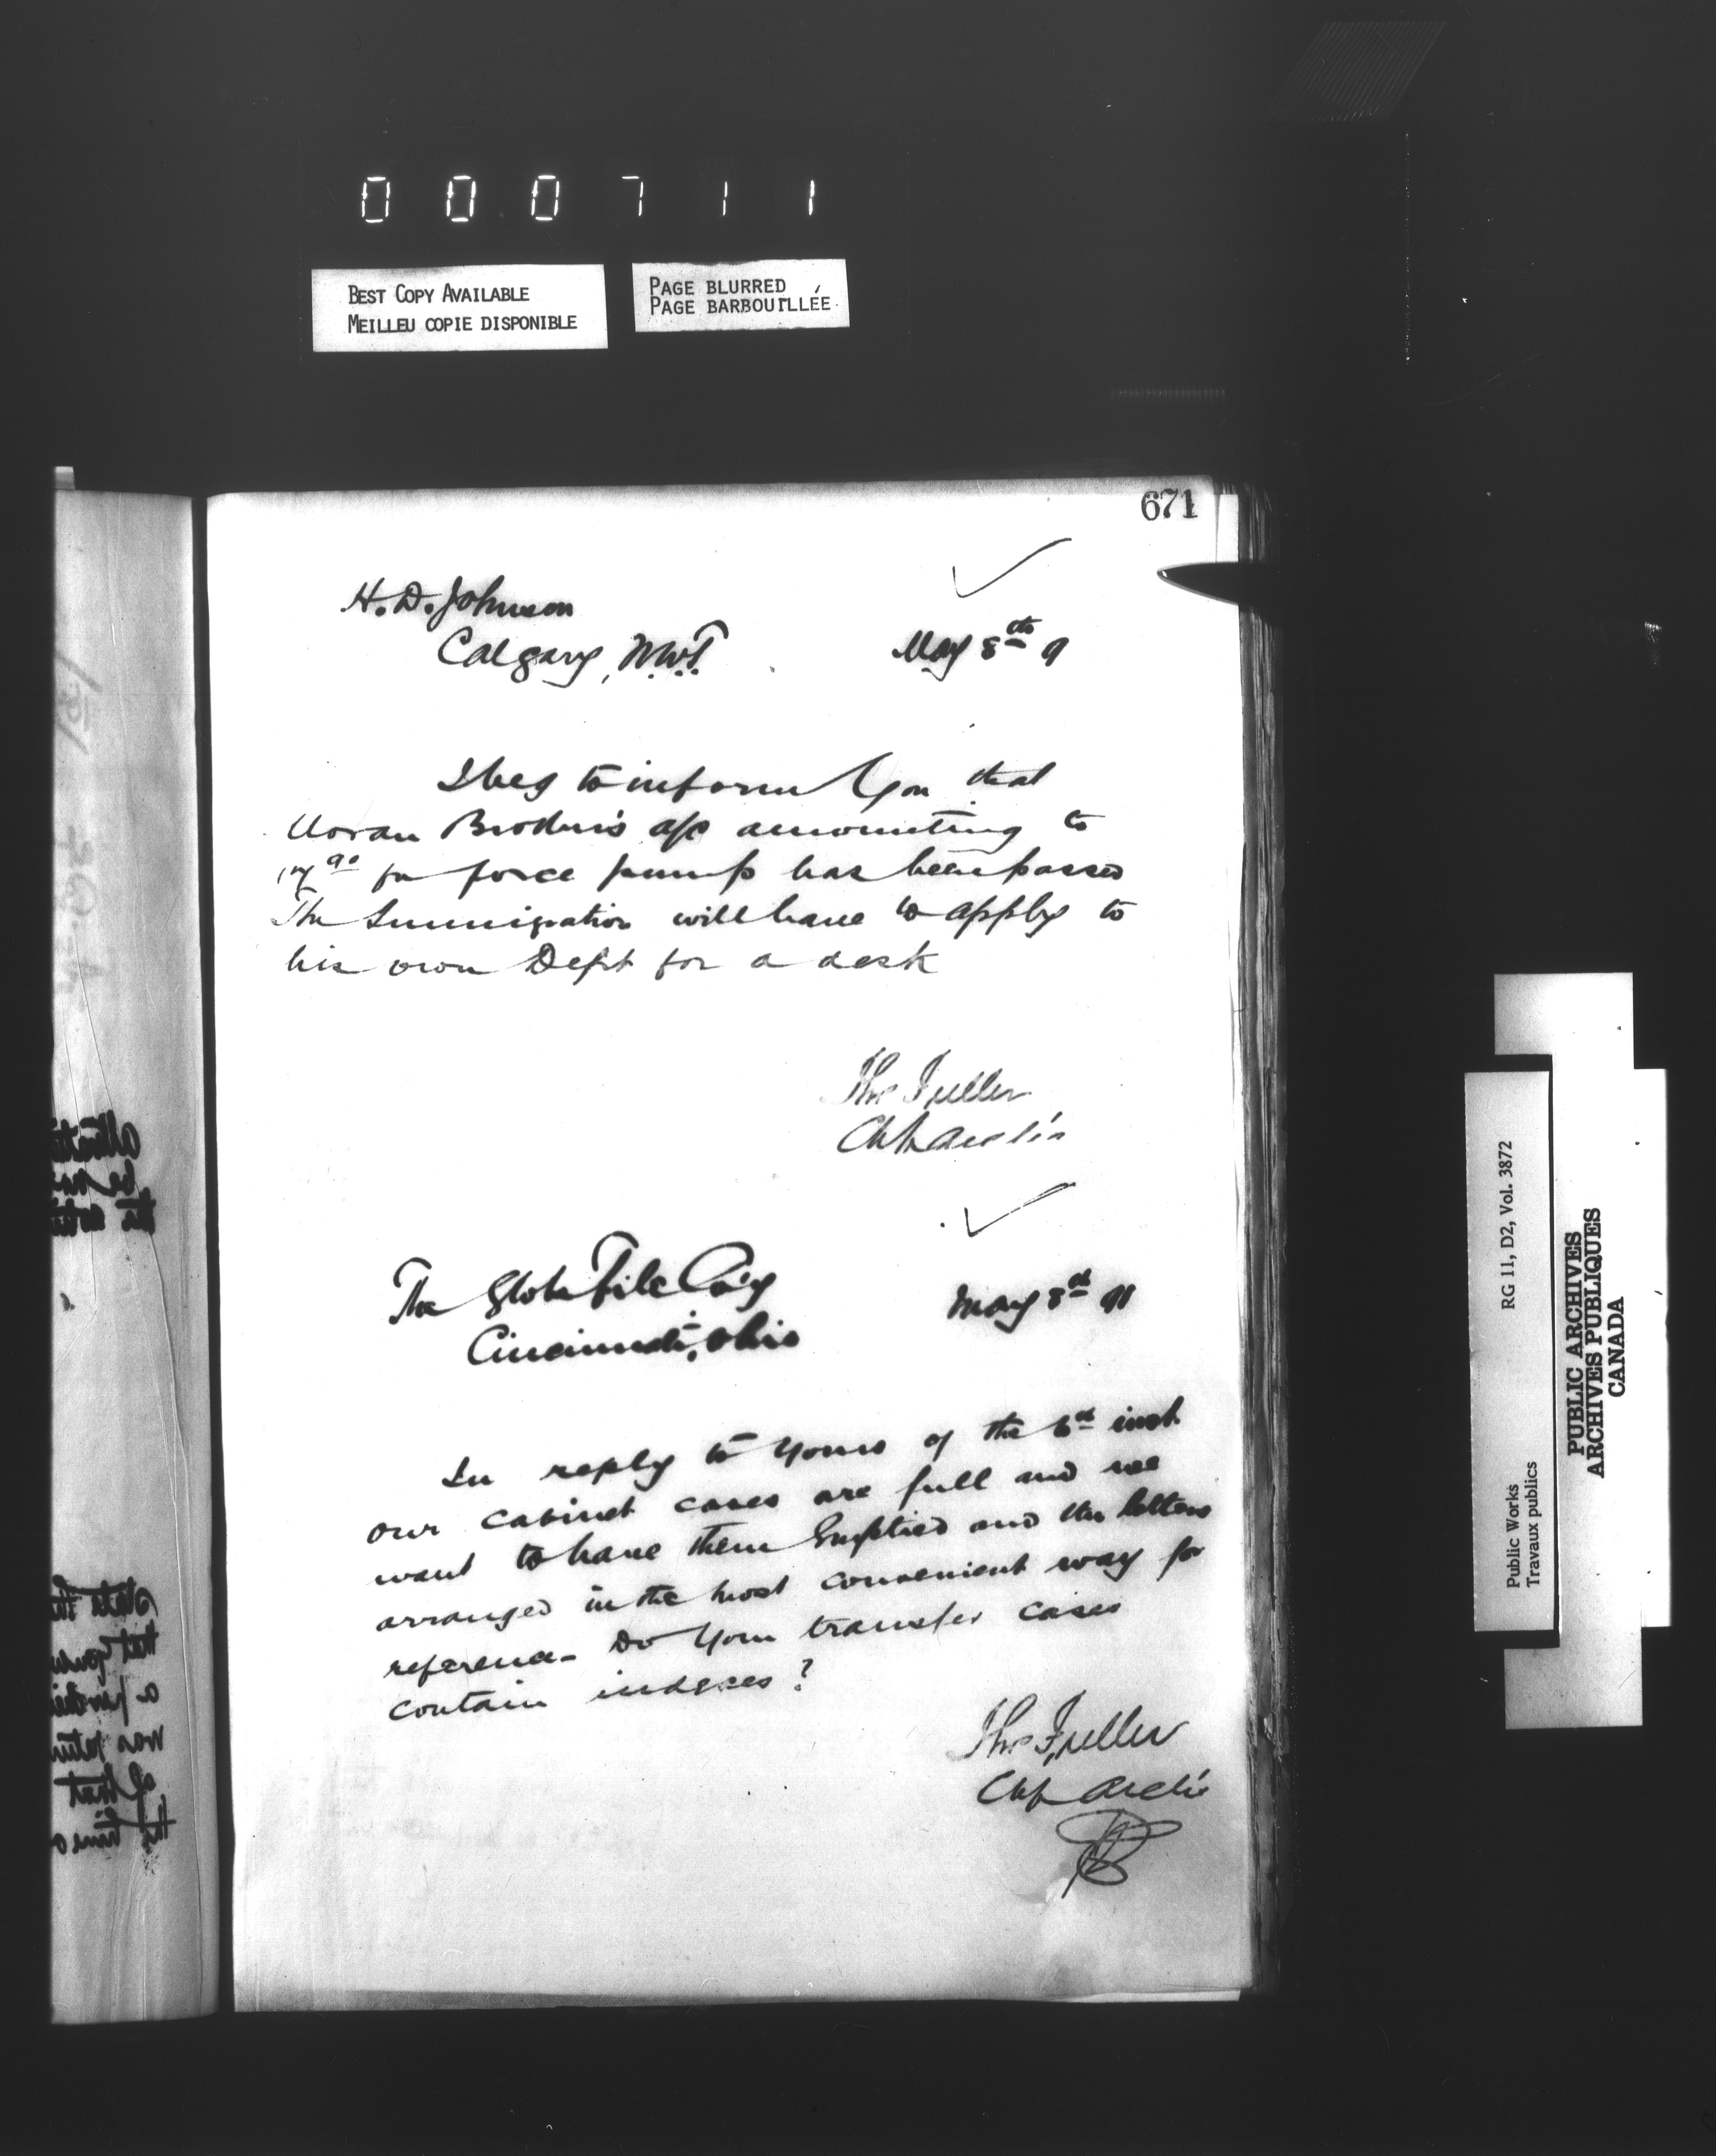 000711
BEST COPY AVAILABLE
MEILLEU COPIE DISPONIBLE
PAGE BLURRED
PAGE BARBOUILLÉE
671
H. D. Johnson
Calgary, N.W.T.
May 8th 9
I beg to inform you that
Brother's a/c amounting to
17 90 for force pump has been passed
The Immigration will have to apply to
his own Dept for a desk
Thos Fuller
Chf Archt
The Globe File Co'y
Cincinnati, Ohio
May 8th 91
In reply to Yours of the 6th inst
our cabinet cases are full and we
want to have them Emptied and the letters
arranged in the most convenient way for
reference - Do Your transfer cases
contain indexes?
Thos Fuller
Chf Archt
RG 11, D2, Vol. 3872
Public Works
Travaux publics
PUBLIC ARCHIVES
ARCHIVES PUBLIQUES
CANADA